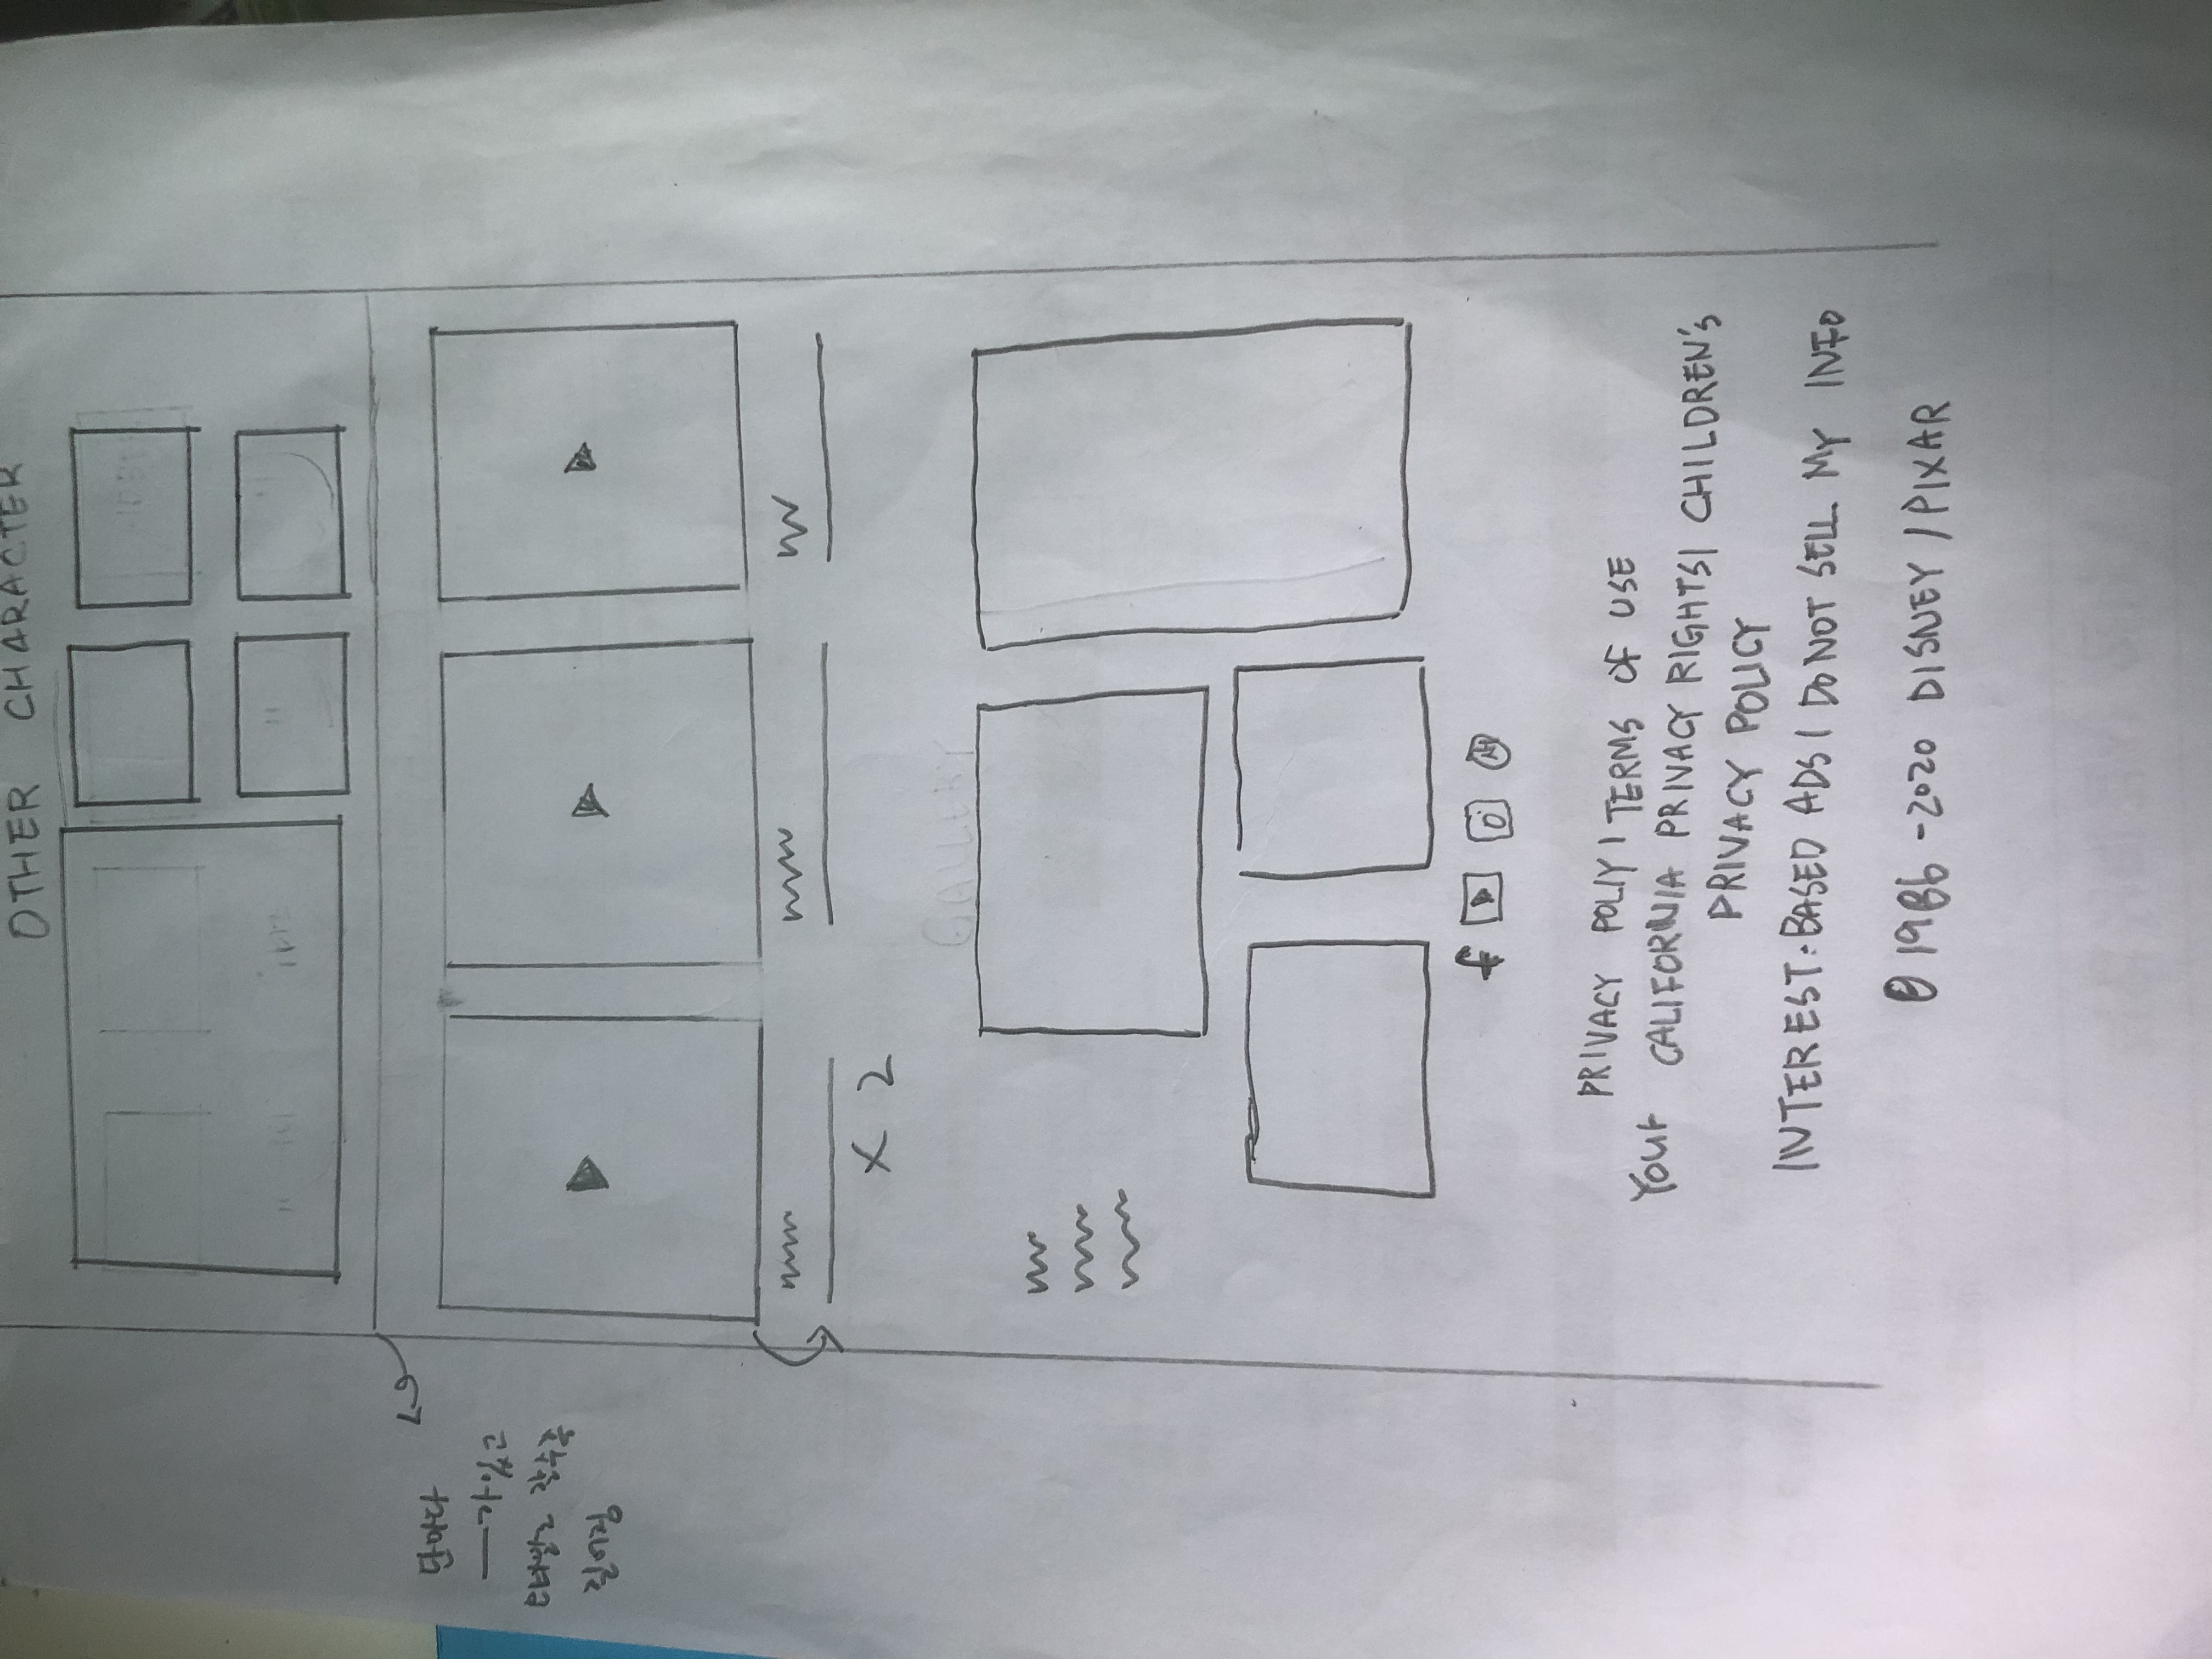 OTHER CHARACTER
단마다
가 있고
갈수록
길어짐
X 2
GALLERY
PRIVACY POLIY | TERMS OF USE
YOUR CALIFORNIA PRIVACY RIGHTS | CHILDREN'S
PRIVACY POLICY
INTEREST-BASED ADS | DO NOT SELL MY INFO
© 1986 - 2020 DISNEY / PIXAR